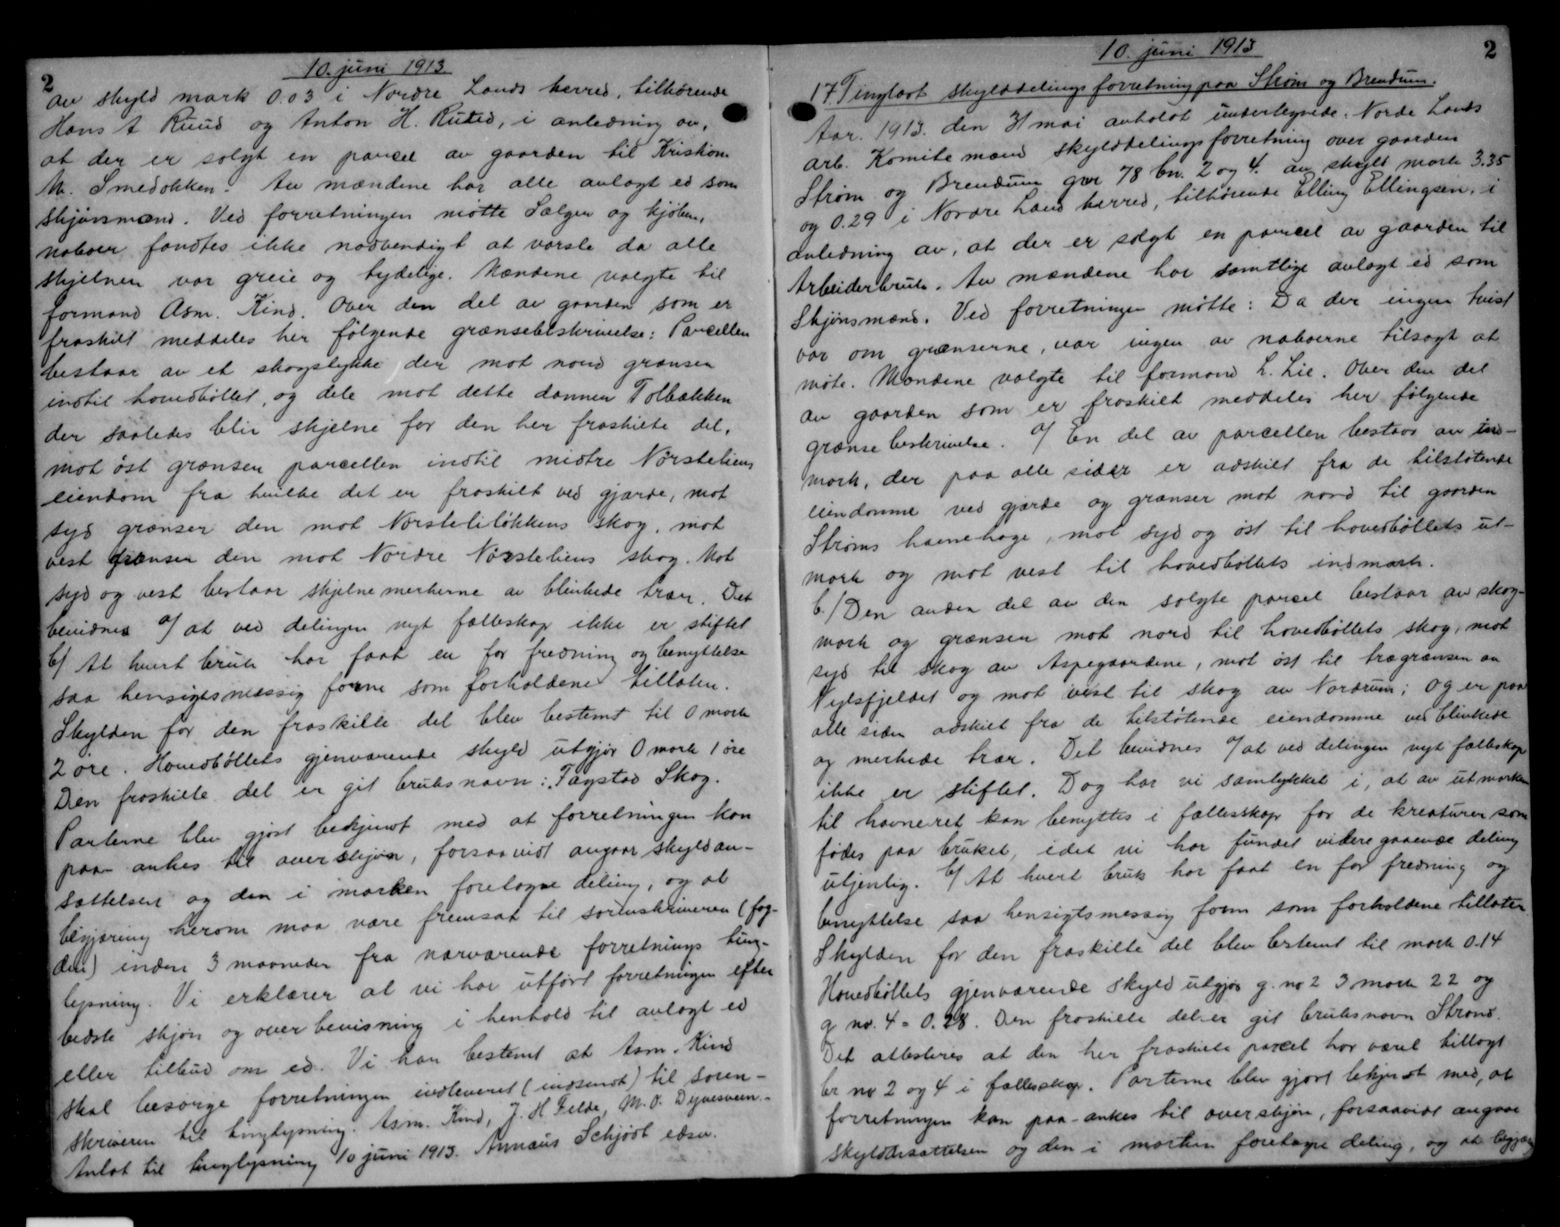 10. juni 1913
2
av skyld mark 0.03 i Nordre Lands herred, tilhørende
Hans A Ruud og Anton H. Rutud, i anledning av,
at der er solgt en parcel av gaarden til Kristian
M. Smedokken. Av mændene har alle avlagt ed som
skjønsmænd. Ved forretningen møtte Sælger og kjøber,
naboer fandtes ikke nødvendigt at varsle da alle
skjelner var greie og tydelige. Mændene valgte til
formand Asm. Kind. Over den del av gaarden som er
fraskilt meddeles her følgende grænsebeskrivelse: Parcellen
bestaar av et skogstykke der mot nord grænser
indtil hovedbøllet, og dele mot dette danner Tolbækken
der saaledes blir skjelne for den her fraskilte del,
mot øst grænser parcellen indtil midtre Nørsteliens
eiendom fra hvilke det er fraskilt ved gjærde, mot
syd grænser den mot Nørstelilökkens skog, mot
vest grænser den mot Nordre Nørsteliens skog. Mot
syd og vest bestaar skjelnemerkerne av blinkede trær. Det
bevidnes a/ at ved delingen nyt fælleskap ikke er stiftet
b/ At hvert bruk har faat en for fredning og benyttelse
saa hensigtsmæssig form som forholdene tillater.
Skylden for den fraskilte del blev bestemt til 0 mark
2 øre. Hovedbøllets gjenværende skyld utgjør 0 mark 1 øre
Den fraskilte del er git bruksnavn: Fagstad Skog.
Parterne blev gjort bekjendt med at forretningen kan
paa-ankes til overskjøn, forsaavidt angaar skyldan-
sættelsen og den i marken foretagne deling, og at
begjæring herom maa være fremsat til sorenskriveren (fog-
den) inden 3 maaneder fra nærværende forretnings ting-
lysning. Vi erklærer at vi har utført forretningen efter
bedste skjøn og overbevisning i henhold til avlagt ed
eller tilbud om ed. Vi har bestemt at Asm. Kind
skal besørge forretningen indleveret (indsendt) til soren-
skriveren til tinglysning. Asm. Kind, J. H Felde, M. O.
Antat til tinglysning 10 juni 1913. Annæus Schjödt edsv.
10. juni 1913
2
17 Tinglæst skylddelingsforretning paa Strøm og Brendum.
Aar. 1913. den 31 mai avholdt undertegnede Nordre Lands
arb. Komite mænd skylddelingsforretning over gaarden
Strøm og Brendum gnr 78 bn. 2 og 4. av skyld mark 3.35
og 0.29 i Nordre Land herred, tilhørende Elling Ellingsen, i
anledning av, at der er solgt en parcel av gaarden til
Arbeiderbruk. Av mændene har samtlige avlagt ed som
Skjønsmænd. Ved forretningen møtte: Da der ingen tvist
var om grænserne, var ingen av naboerne tilsagt at
møte. Mændene valgte til formand L. Lie. Over den del
av gaarden som er fraskilt meddeles her følgende
grænsebeskrivelse. a/ En del av parcellen bestaar av ind-
mark, der paa alle sider er adskilt fra de tilstøtende
eiendomme ved gjærde og grænser mot nord til gaarden
Strøms havnehage, mot syd og øst til hovedbøllets ut-
mark og mot vest til hovedbøllets indmark.
b./ Den anden del av den solgte parcel bestaar av skog-
mark og grænser mot nord til hovedbøllets skog, mot
syd til skog av Aspegaardene, mot øst til trægrænsen av
og mot vest til skog av Nordrum; og er paa
alle sider adskilt fra de tilstøtende eiendomme ved blinkede
og merkede trær. Det bevidnes a/ at ved delingen nyt fælleskap
ikke er stiftet. Dog har vi samtykket i, at av utmarken
til havneret kan benyttes i fælleskap for de kreaturer som
fødes paa bruket, idet vi har fundet videregaaende deling
utjenlig. b/ At hvert bruk har faat en for fredning og
benyttelse saa hensigtsmessig form som forholdene tillater
Skylden for den fraskilte del blev bestemt til mark 0.14
Hovedbøllets gjenværende skyld utgjør g. no 2 3 mark 22 og
g no. 4 = 0.28. Den fraskilte del er git bruksnavn
Det attesteres at den her fraskilte parcel har været tillagt
br no 2 og 4 i fælleskap. Parterne blev gjort bekjendt med, at
forretningen kan paa-ankes til overskjøn, forsaavidt angaar
skyldansættelsen og den i marken foretagne deling, og at begjæ